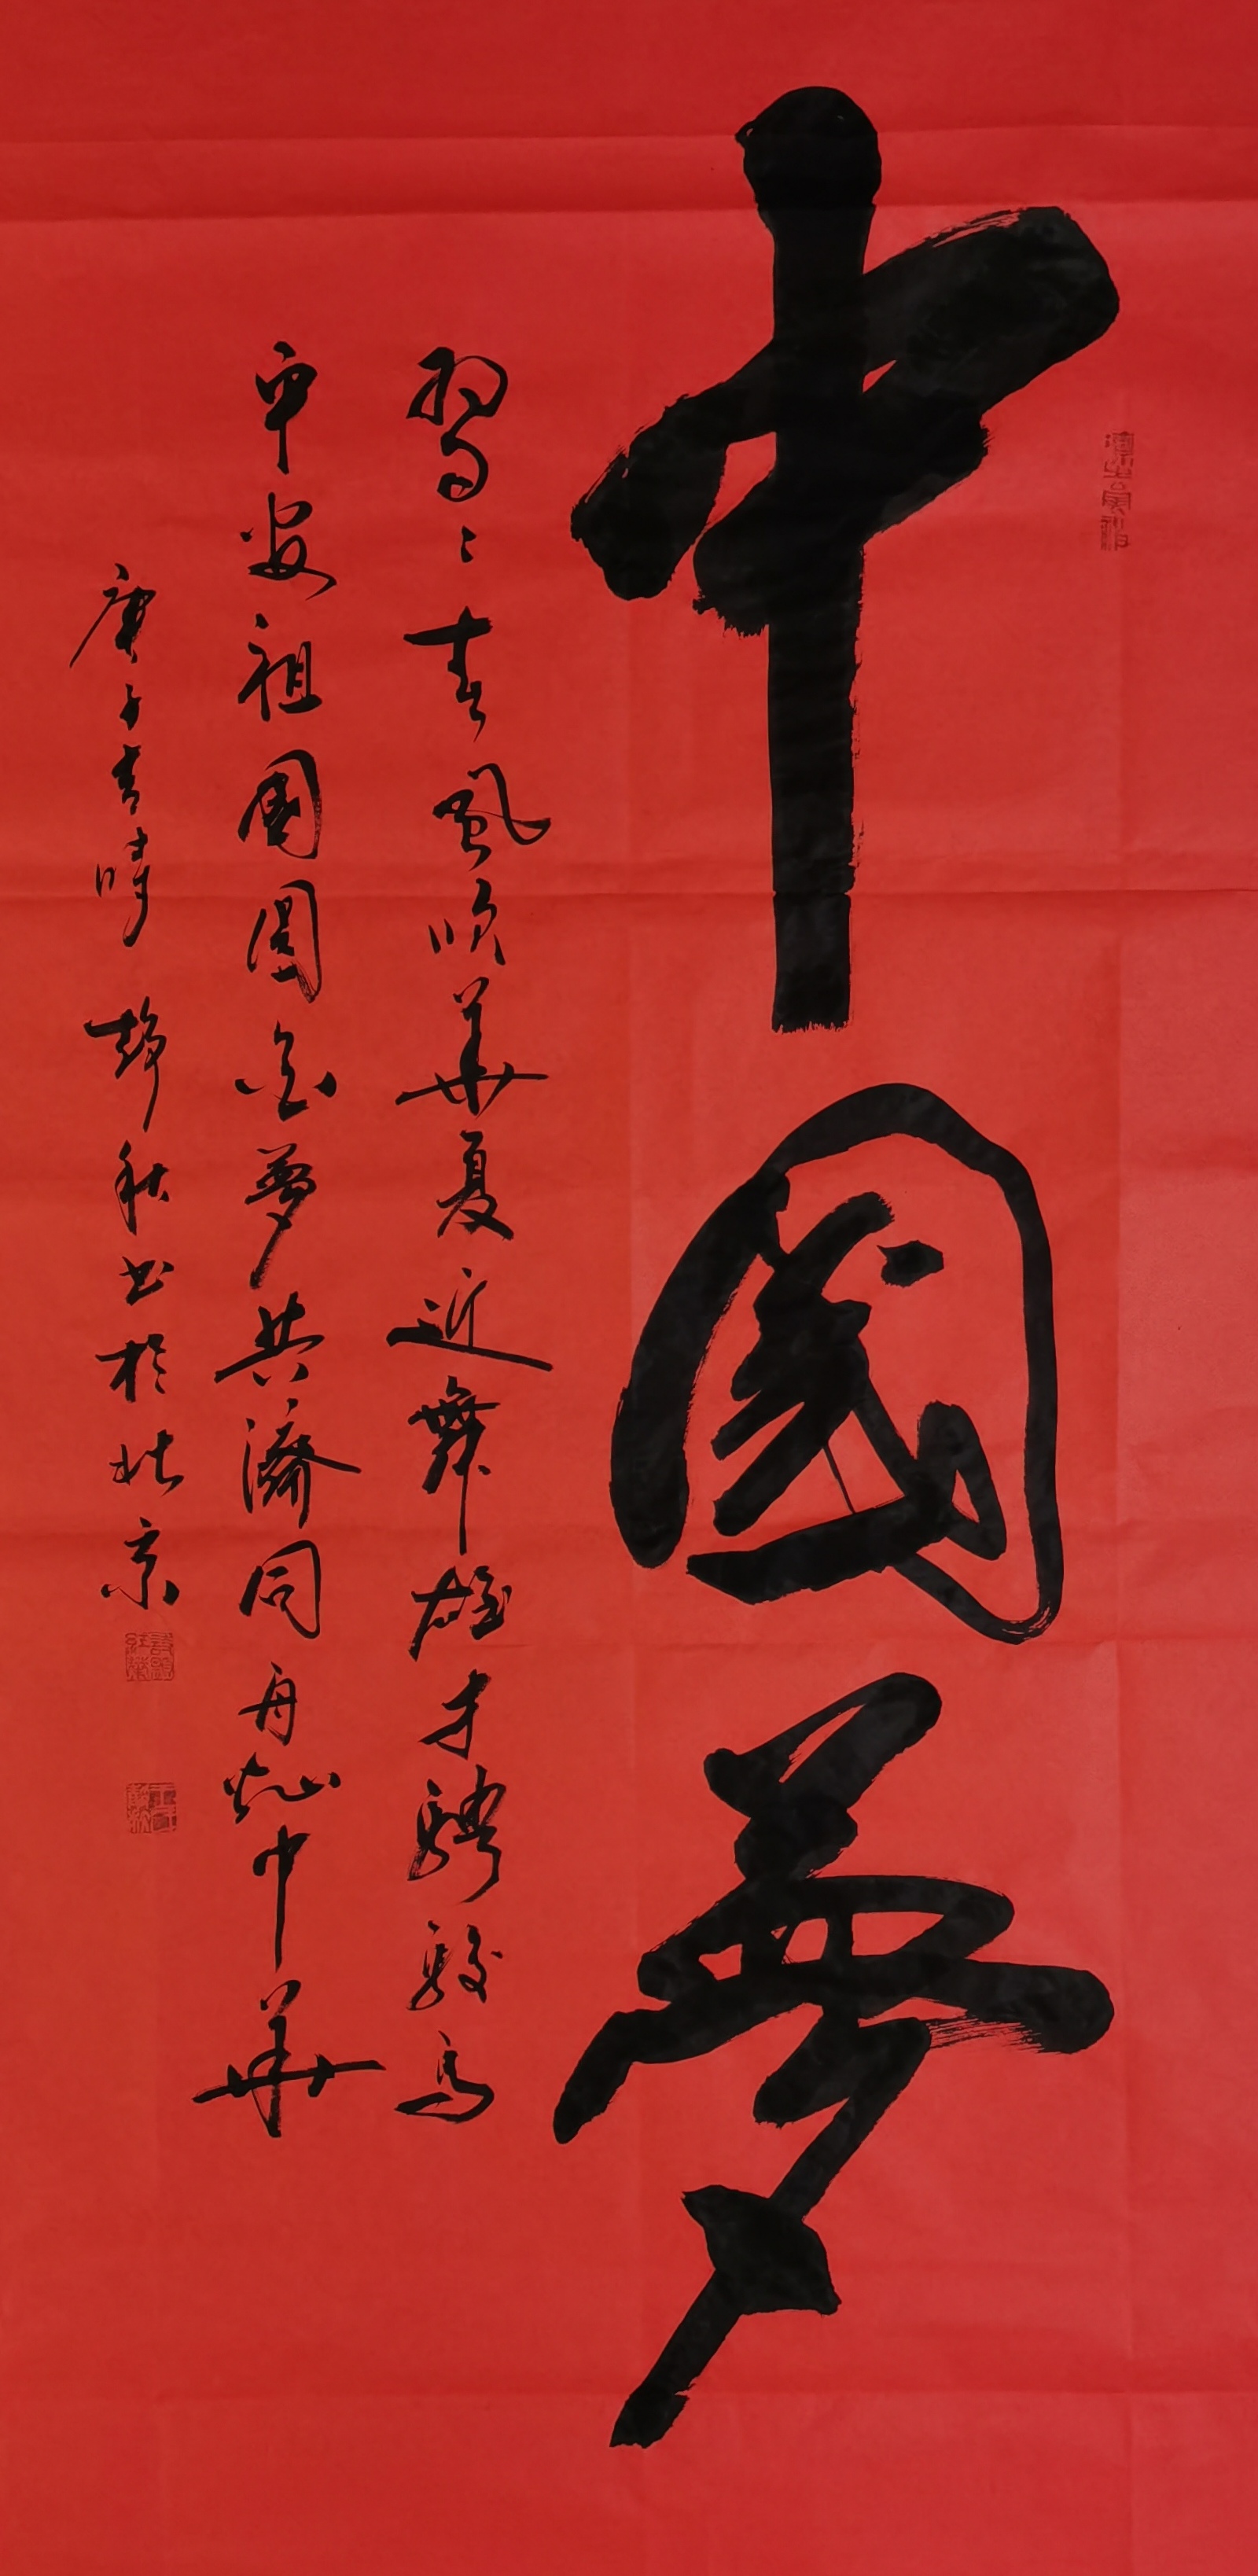 中國夢
習〻春風吹華夏近舞雄才騁駿馬
平安祖國圓金夢共濟同舟灿中華
庚子春晴 静秋书於北京